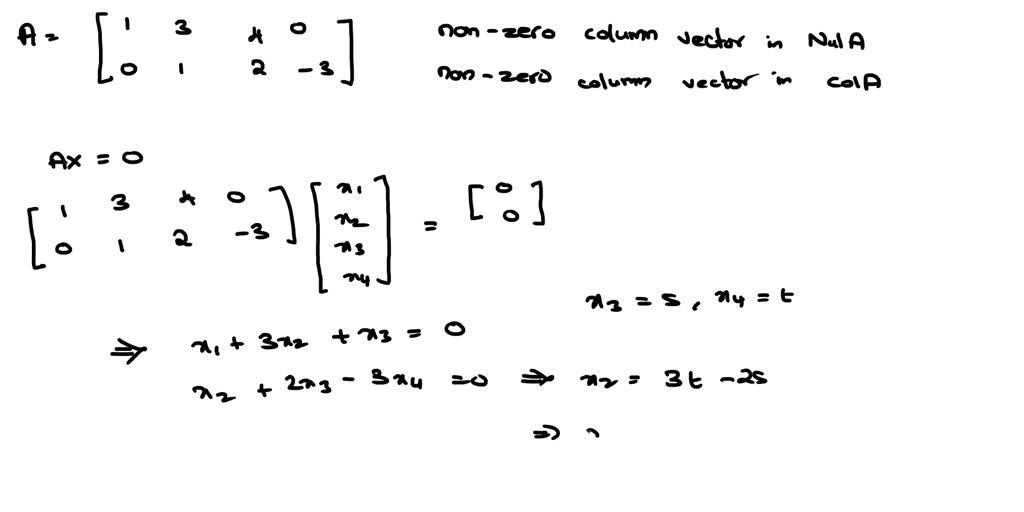 A = [ 1 3 4 0 non-zero column vector in NulA
0 1 2 -3 ] non-zero column vector in colA
Ax = 0
[ 1 3 4 0 ] [ x1 = [ 0
0 1 2 -3 x2 0 ]
x3
x4 ]
x3 = s, x4 = t
⇒ x1 + 3x2 + x3 = 0
x2 + 2x3 - 3x4 = 0 ⇒ x2 = 3t - 2s
⇒